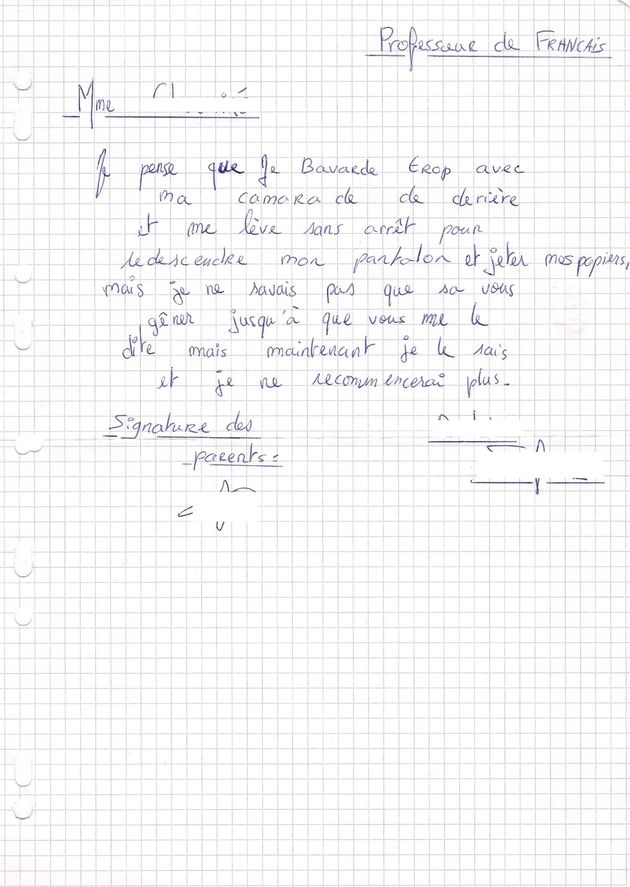 Professeur de FRANCAIS
Mme
Je pense que Je Bavarde trop avec
ma camarade de derière
et me lève sans arrêt pour
redescendre mon pantalon et jeter mes papiers,
mais je ne savais pas que sa vous
gêner jusqu'à que vous me le
dite mais maintenant je le sais
et je ne recommencerai plus.
Signature des
parents :